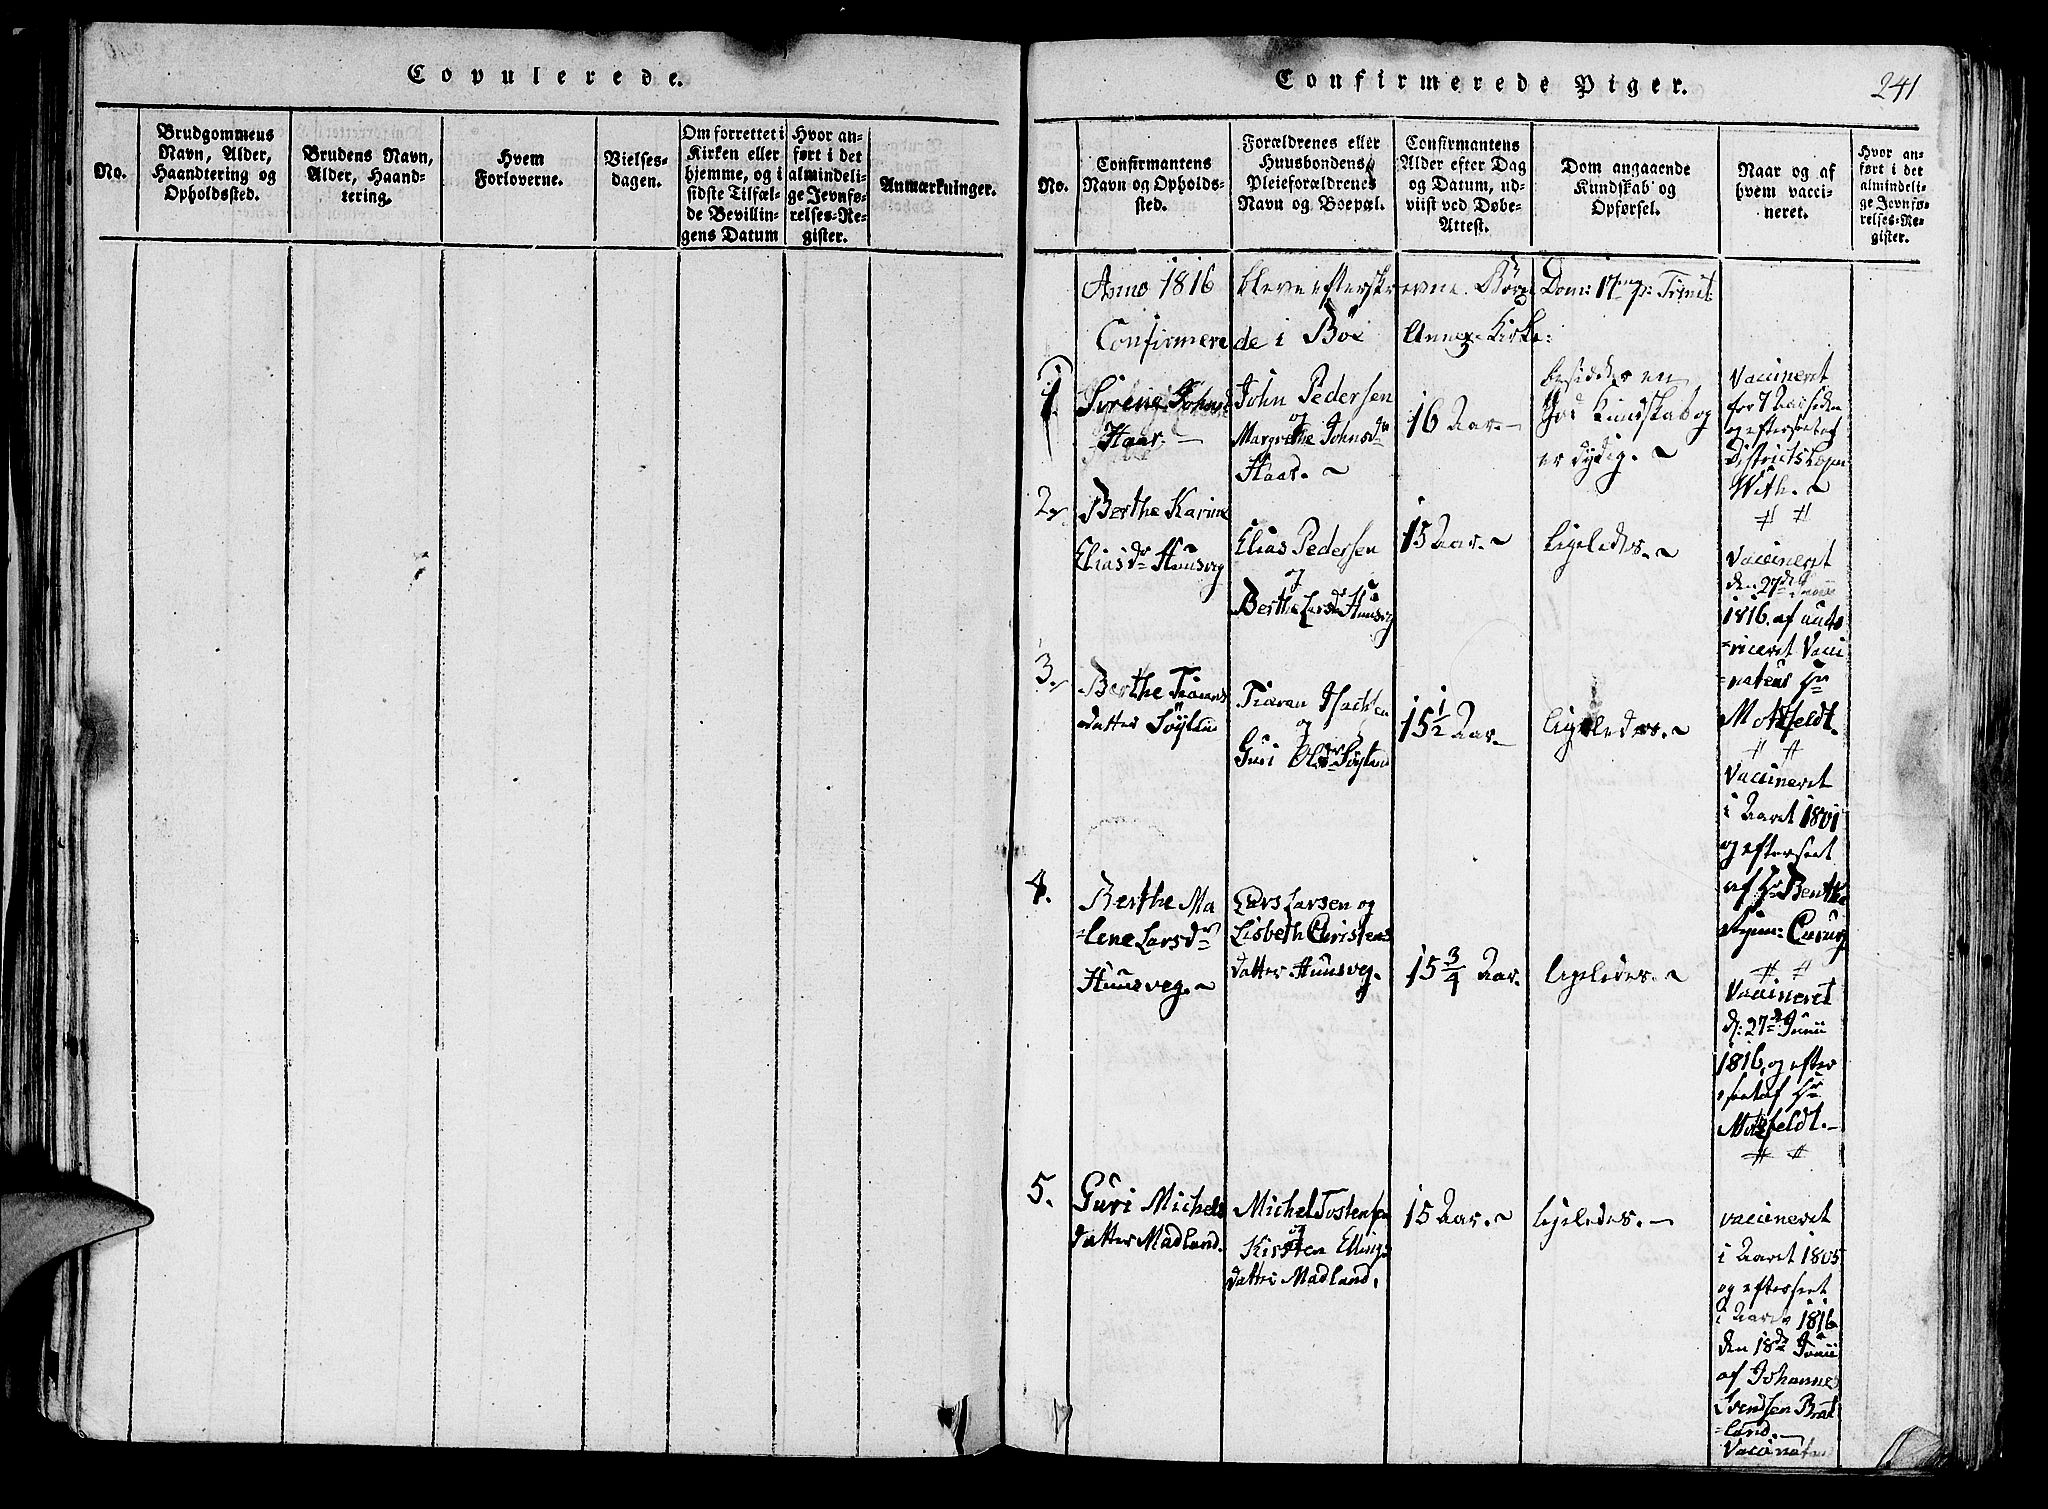 Copulerede.
No.
Brudgommens
Navn, Alder,
Haandtering og
Opholdssted.
Brudens Navn,
Alder, Haand-
tering.
Hvem
Forloverne.
Vielses-
dagen.
Om forrettet i
Kirken eller
hjemme, og i
sidste Tilfæl-
de Bevillin-
gens Datum
Hvor an-
ført i det
almindeli-
ge Jevnfø-
relses-Re-
gister.
Anmærkninger.
Confirmerede Piger.
241
No.
Confirmantens
Navn og Opholds-
sted.
Forældrenes eller
Huusbondens
Pleieforældrenes
Navn og Boepæl.
Confirmantens
Alder efter Dag
og Datum, ud-
viist ved Døbe-
Attest.
Dom angaaende
Kundskab og
Opførsel.
Naar og af
hvem vacci-
neret.
Hvor an-
ført i det
almindeli-
ge Jevnfø-
relses-Re-
gister.
Anno 1816 bleve efterskrevne Børn Dom: 17 p: Trinit:
Confirmerede i Böe Annex-Kirke:
1.
Johns
Haar.
John Pedersen
og
Margrethe Johnsdr
Haar.
16 Aar.
besidder en
god Kundskab og
er dydig.
Vaccineret
for 7 Aar siden
og efterseet af
Districtslægen
With.
2.
Berthe Karine
Eliasdr Huusveg
Elias Pedersen
og
Berthe Larsdr Huusveg
15 Aar.
Ligeledes.
Vaccineret
den 27de Junii
1816 af auto
-riceret Vacci
-nateur Hr
Motzfeldt.
3.
Berthe
datter Söyland
Isachsen
og
Guri Olsdr Söyland
15 1/2 Aar.
ligeledes.
Vaccineret
i Aaret 1801
og efterseet
af Hr
4.
Berthe Ma
-lene Larsdr
Huusveg.
Lars Larsen og
Lisbeth Christens
datter Huusveg.
15 3/4 Aar.
ligeledes.
Vaccineret
d: 27de Junii
1816, og efter
-seet af Hr
Motzfeldt.
5.
Guri Michels
datter Madland.
Michel Tostensen
og
Kirsten Ellings
datter Madland.
15 Aar.
ligeledes.
vaccineret
i Aaret 1805
og efterseet
i Aaret 1816
den 18de Junii
af Johannes
Svendsen Brat
-land.
Vaccinateur